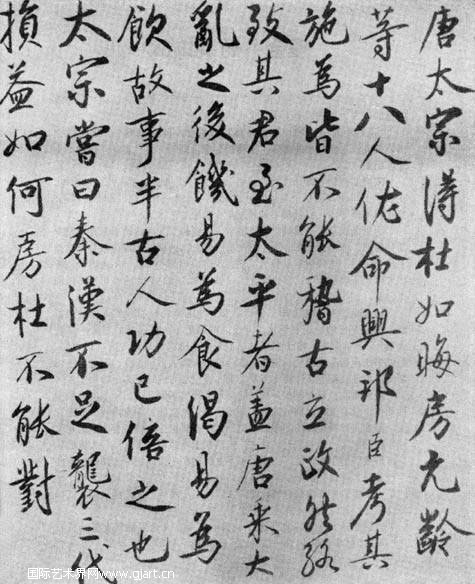 唐太宗得杜如晦房元齡
等十八人佐命興邦臣考其
施為皆不能稽古立政然能
致其君至太平者蓋唐乘大
亂之後饑易為食渴易為
飲故事半古人功已倍之也
太宗嘗曰秦漢不足襲三代
損益如何房杜不能對
国际艺术界网www.gjart.cn